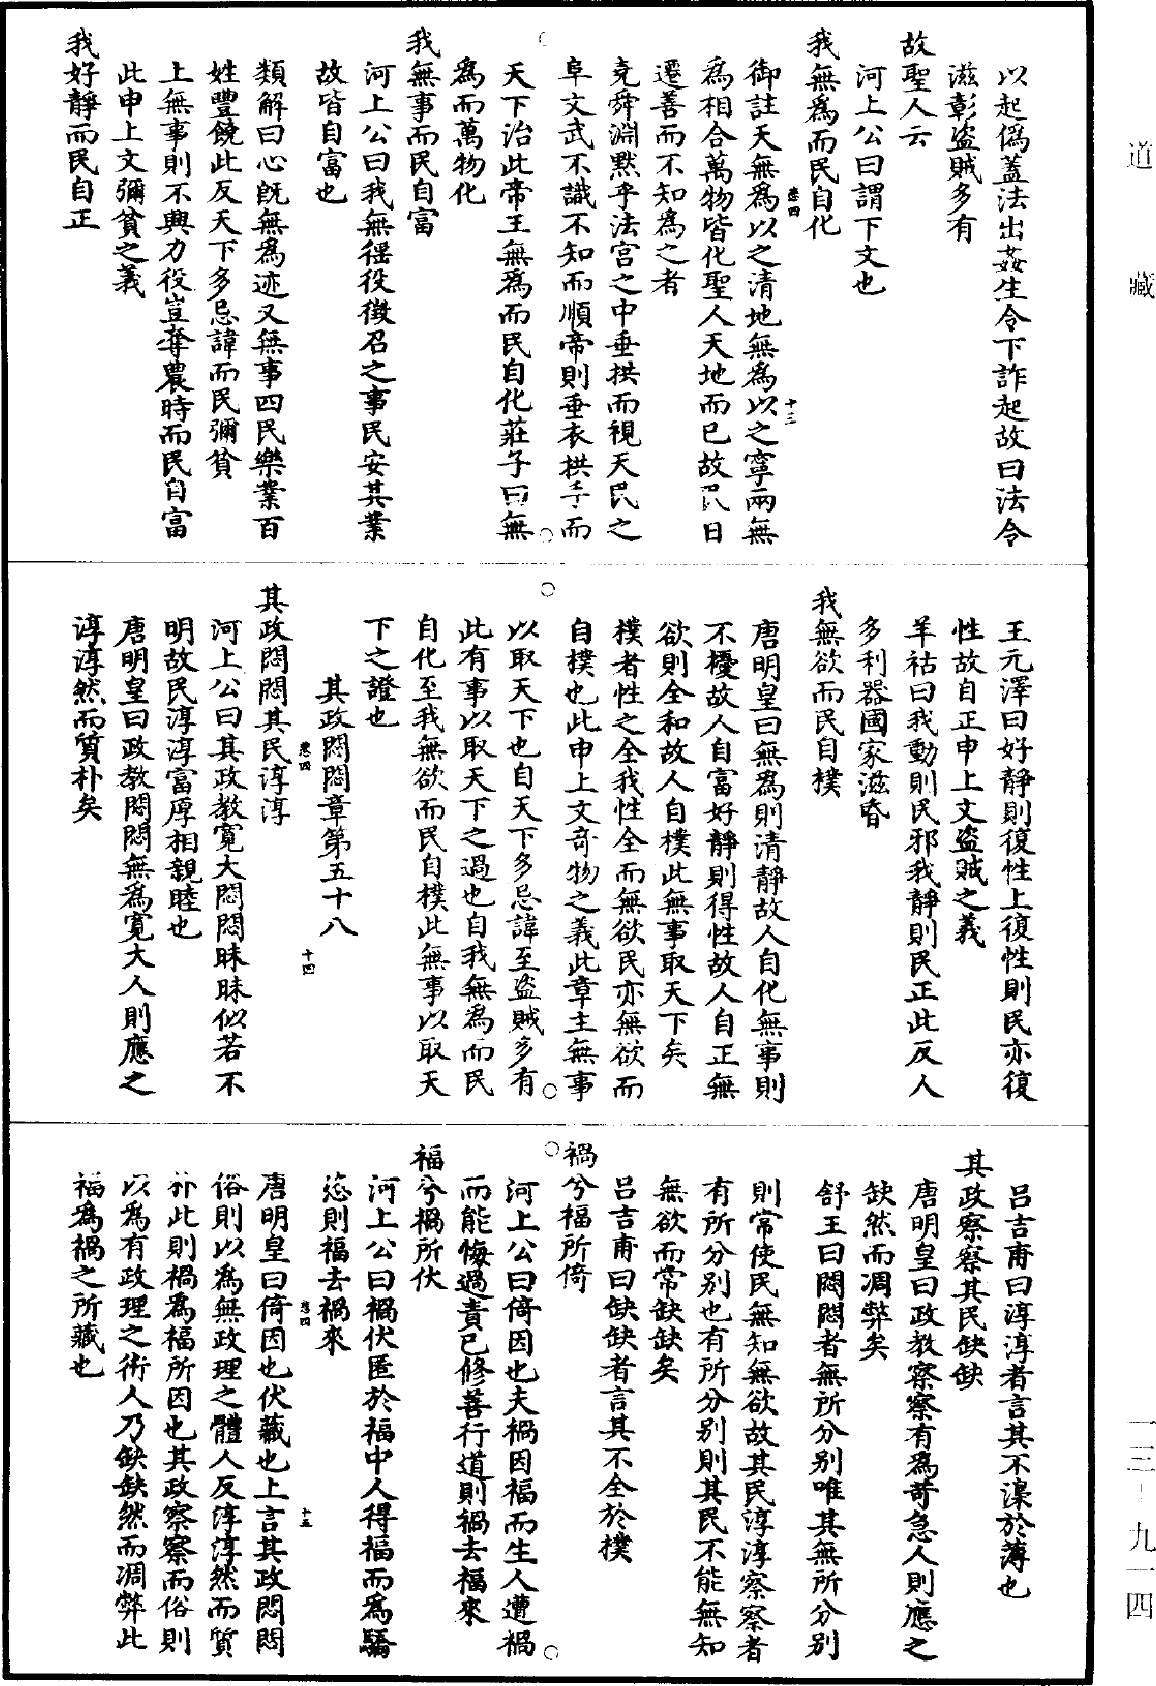 道藏
以起僞蓋法出姦生令下詐起故曰法令
滋彰盜賊多有
故聖人云
河上公曰謂下文也
我無爲而民自化
卷四
十三
御註天無爲以之清地無爲以之寧兩無
爲相合萬物皆化聖人天地而已故民日
遷善而不知爲之者
堯舜淵默乎法宮之中垂拱而視天民之
阜文武不識不知而順帝則垂衣拱手而
天下治此帝王無爲而民自化莊子曰無
爲而萬物化
我無事而民自富
河上公曰我無徭役徵召之事民安其業
故皆自富也
類解曰心旣無爲迹又無事四民樂業百
姓豐饒此反天下多忌諱而民彌貧
上無事則不興力役豈奪農時而民自富
此申上文彌貧之義
我好靜而民自正
王元澤曰好靜則復性上復性則民亦復
性故自正申上文盜賊之義
羊祜曰我動則民邪我靜則民正此反人
多利器國家滋昏
我無欲而民自樸
唐明皇曰無爲則清靜故人自化無事則
不擾故人自富好靜則得性故人自正無
欲則全和故人自樸此無事取天下矣
樸者性之全我性全而無欲民亦無欲而
自樸也此申上文奇物之義此章主無事
以取天下也自天下多忌諱至盜賊多有
此有事以取天下之過也自我無爲而民
自化至我無欲而民自樸此無事以取天
下之證也
其政悶悶章第五十八
卷四
十四
其政悶悶其民淳淳
河上公曰其政教寬大悶悶昧昧似若不
明故民淳淳富厚相親睦也
唐明皇曰政教悶悶無爲寬大人則應之
淳淳然而質朴矣
呂吉甫曰淳淳者言其不澆於薄也
其政察察其民缺缺
唐明皇曰政教察察有爲苛急人則應之
缺然而凋弊矣
舒王曰悶悶者無所分別唯其無所分別
則常使民無知無欲故其民淳淳察察者
有所分別也有所分別則其民不能無知
無欲而常缺缺矣
呂吉甫曰缺缺者言其不全於樸
禍兮福所倚
河上公曰倚因也夫禍因福而生人遭禍
而能悔過責己修善行道則禍去福來
福兮禍所伏
河上公曰禍伏匿於福中人得福而爲驕
恣則福去禍來
卷四
十五
唐明皇曰倚因也伏藏也上言其政悶悶
俗則以爲無政理之體人反淳淳然而質
朴此則禍爲福所因也其政察察而俗則
以爲有政理之術人乃缺缺然而凋弊此
福爲禍之所藏也
一三-九一四